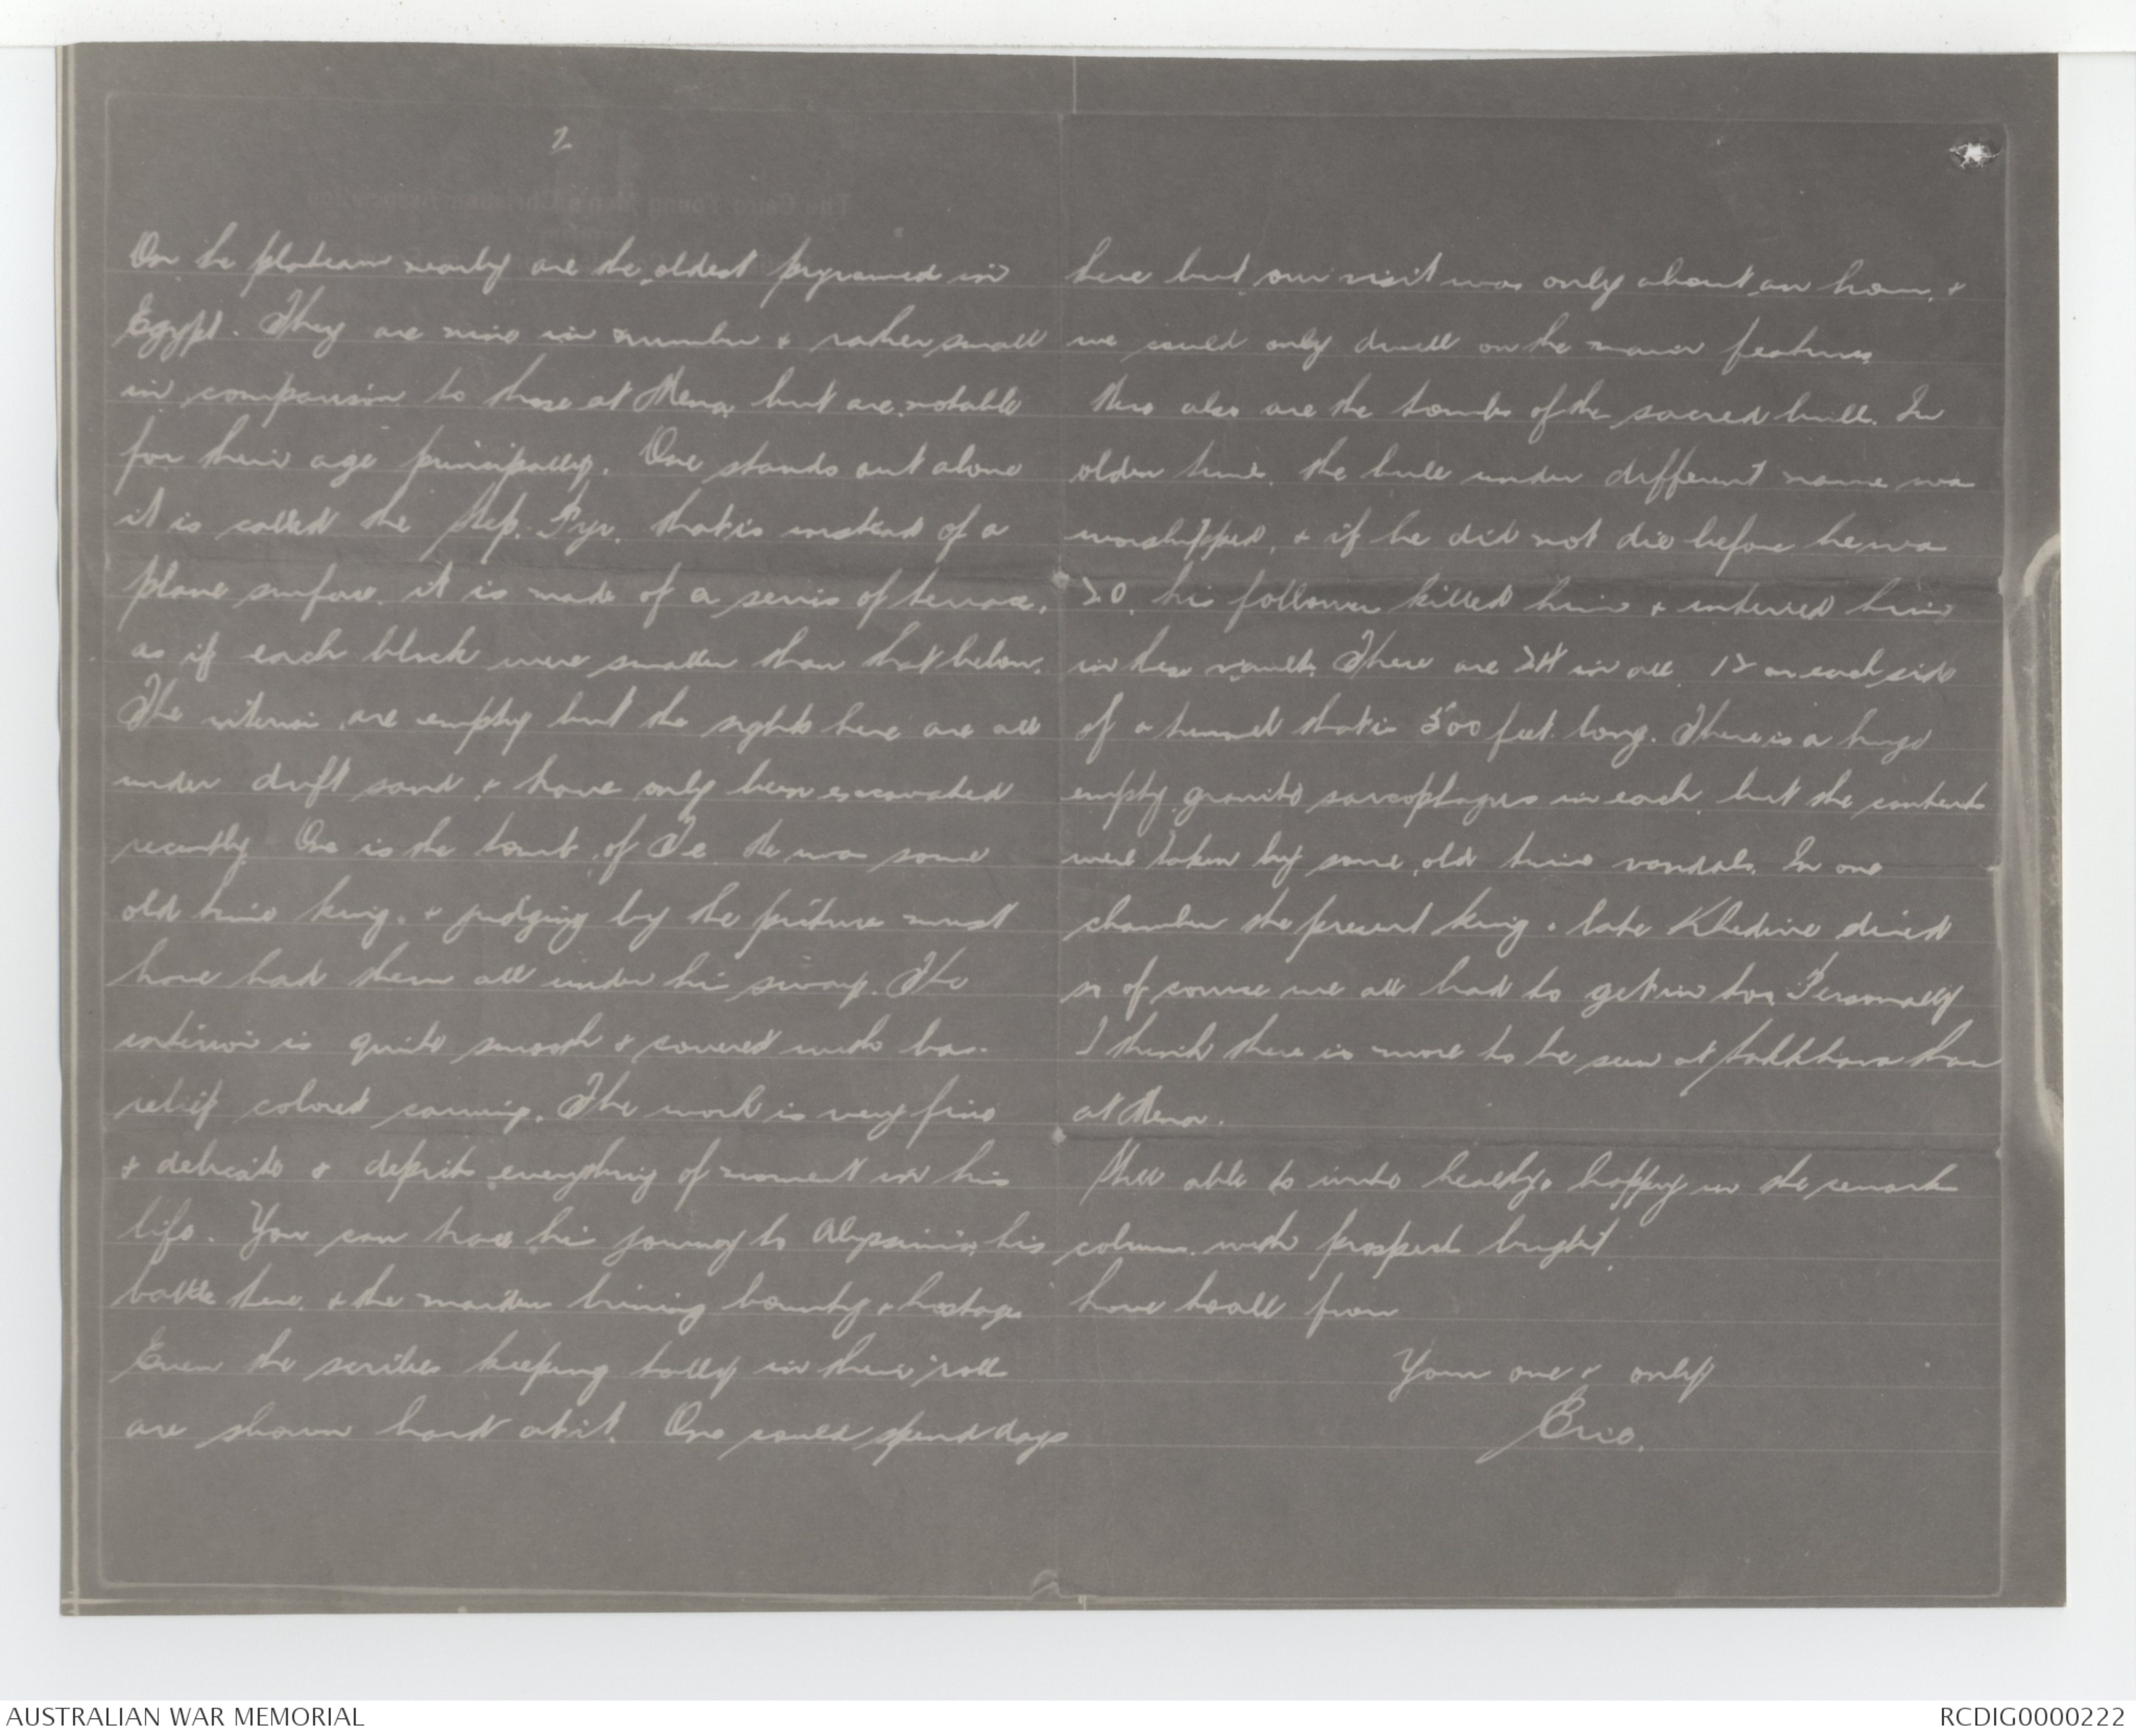 2
On he plateau nearby are the oldest pyramid in
Egypt. They are nine in number & rather small
in comparison to those at Mena, but are notable
for their age principally. One stands out alone
it is called the Step. Pyr. that is instead of a
plane surface. it is made of a series of terrace,
as if each block were smaller than that below.
The interior are empty but the sights here are all
under drift sand, & have only been excavated
recently. One is the tomb of Te. He was some
old time king. & judging by the picture must
have had them all under his sway. The
interior is quite smooth & covered with bas-
relief colored carving. The work is very fine
& delicate & depicts everything of moment in his
life. You can trace his journey to Abyssinia, his
battle there, & the maiden bringing bounty & hostage
Even the scribes keeping tally in their roll
are shown hard at it. One could spend days
here but our visit was only about an hour, &
we could only dwell on the main features
there also are the tombs of the sacred bull. In
olden time. the bull under different name was
worshipped, & if he did not die before he was
20. his follower killed him & interred him
in these vault. There are 24 in all. 12 on each side
of a tunnel that is 500 feet long. There is a huge
empty granite sarcophagus in each, but the contents
were taken by some old time vandals. In one
chamber the present king & late Khedive dined
so of course we all had to get in too. Personally
I think there is more to be seen at Sakkhara than
at Mena.
Still able to write healthy & happy in the remark
column. with prospect bright.
love to all from
Your one & only
Eric.
The Cairo Young Men's Christian Association
AUSTRALIAN WAR MEMORIAL
RCDIG0000222